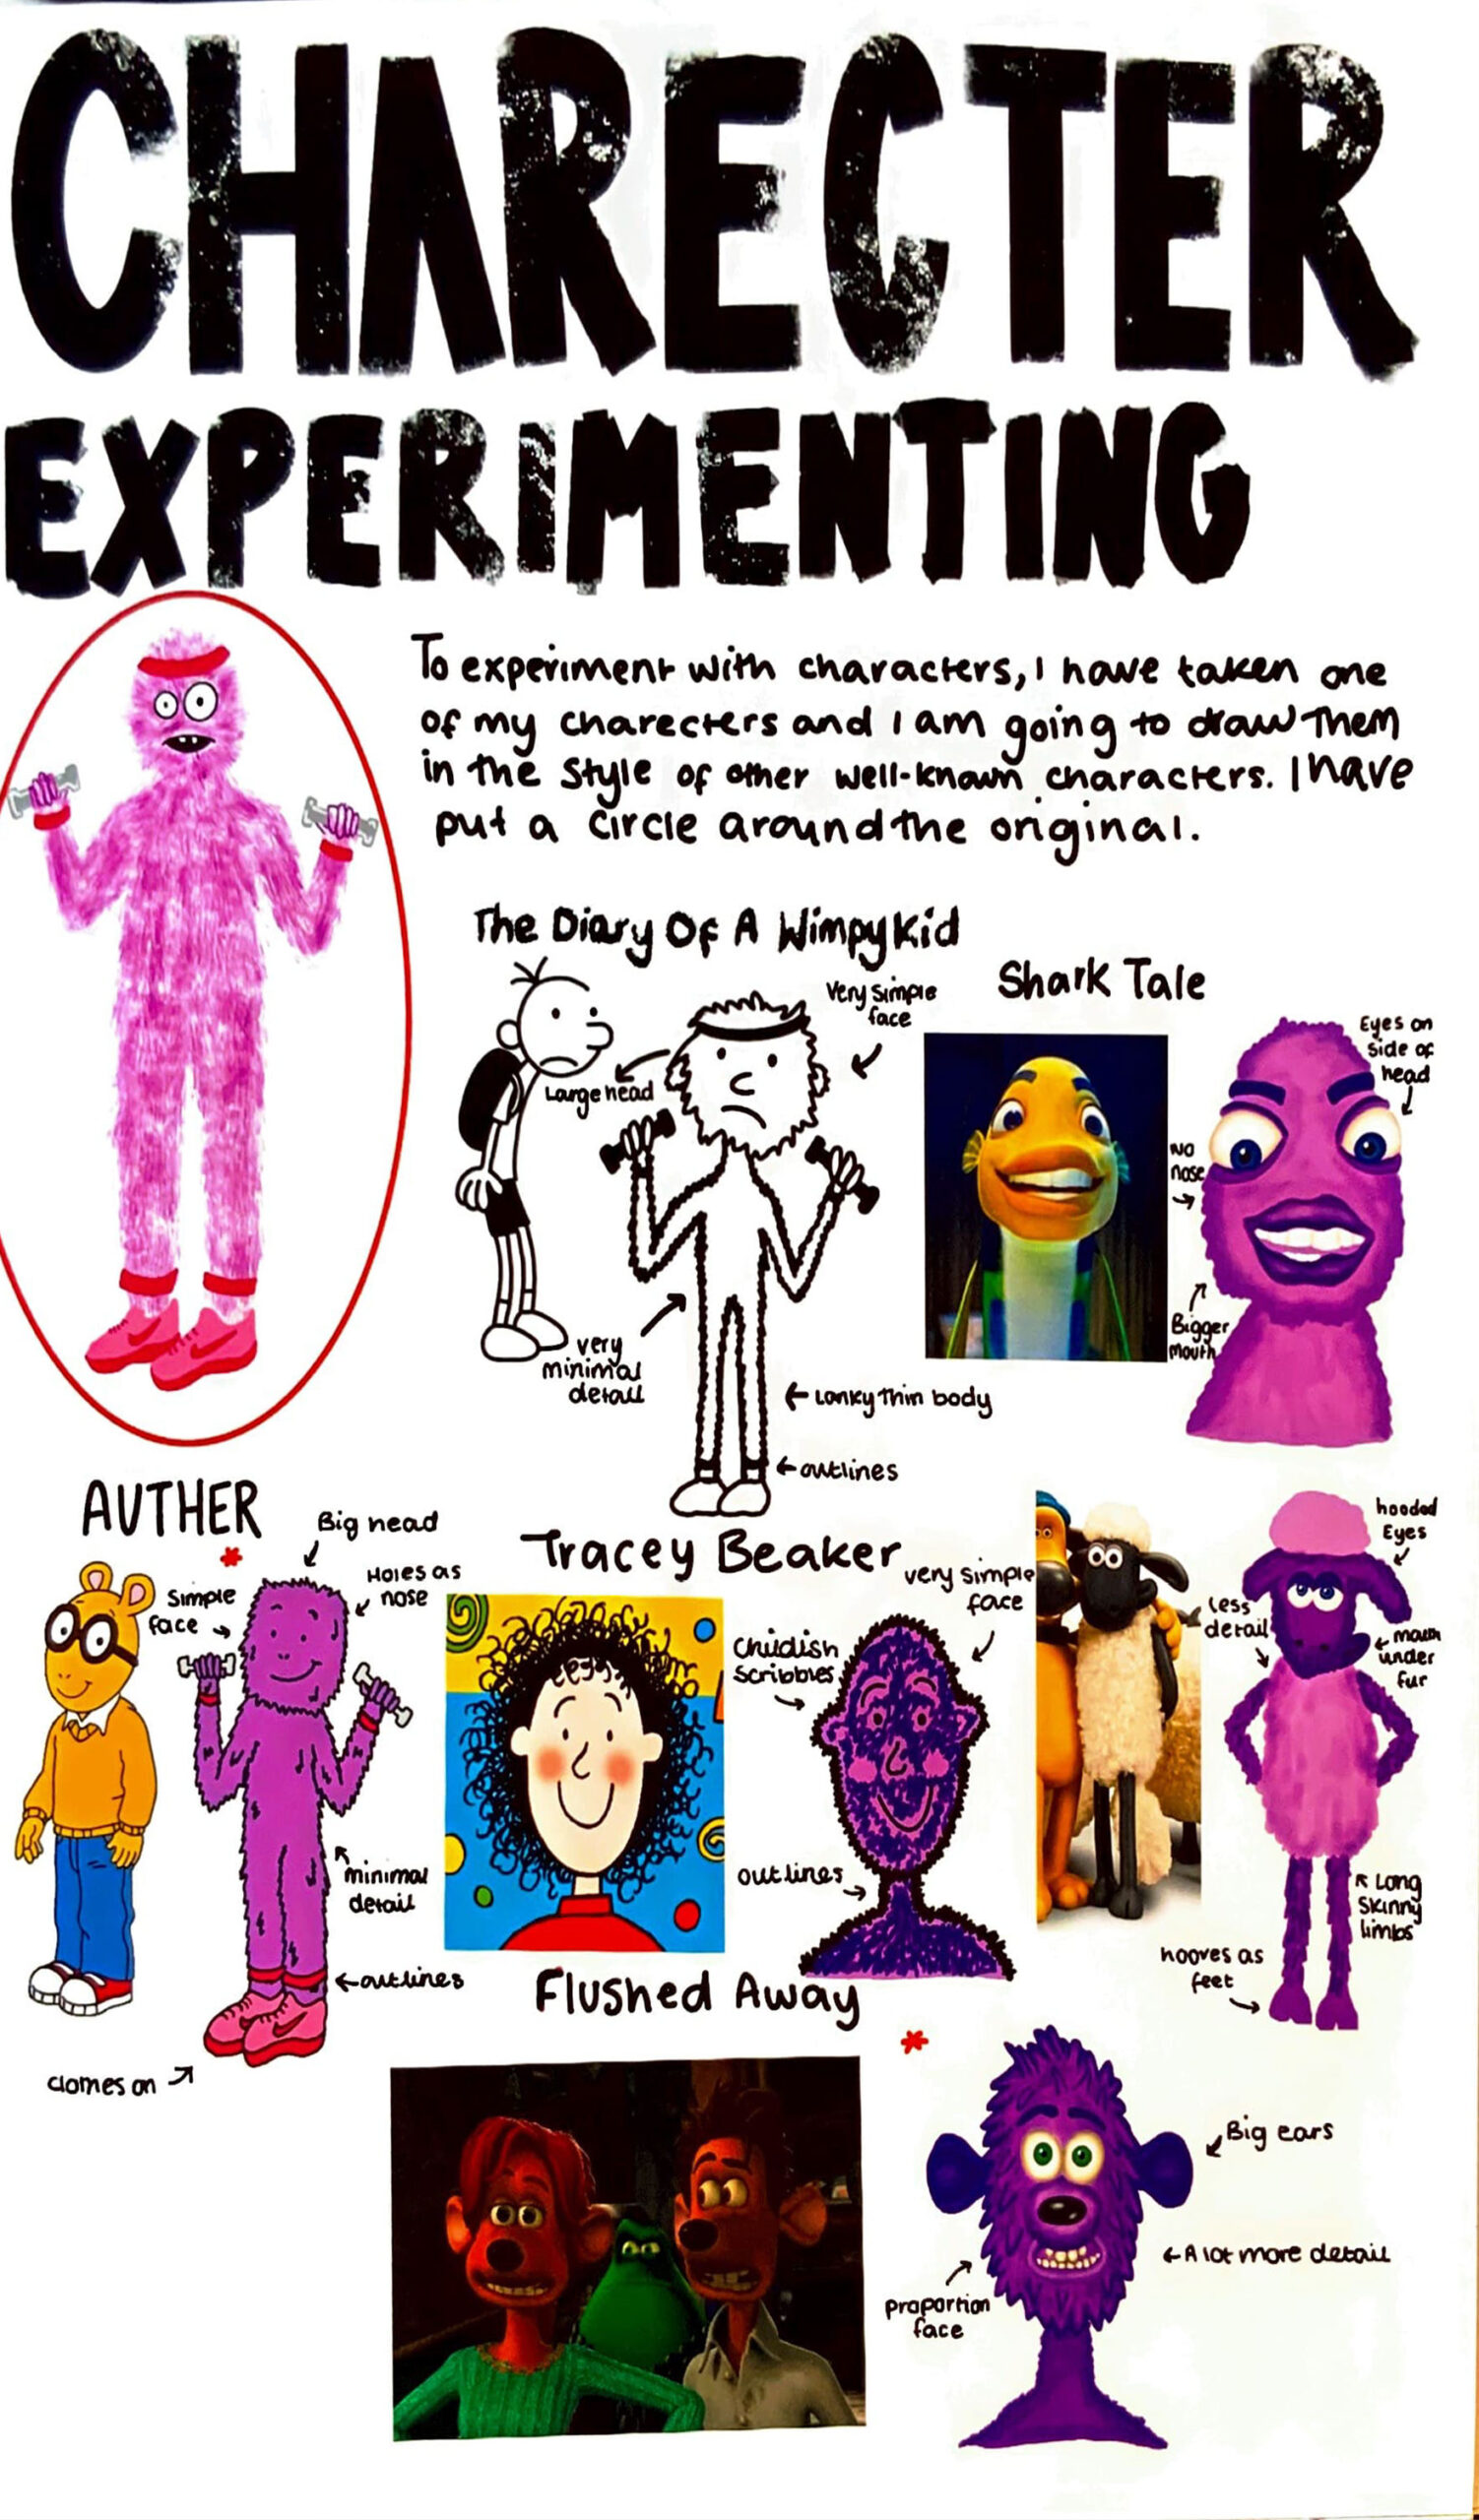 CHARECTER
EXPERIMENTING
To experiment with characters, I have taken one
of my charecters and I am going to draw them
in the style of other well-known characters. I have
put a circle around the original.
The Diary Of A Wimpy Kid
Very simple
face
Large head
very
minimal
detail
Lanky thin body
outlines
Shark Tale
Eyes on
side of
head
No
nose
Bigger
mouth
AUTHER
*
Big head
Simple
face
Holes as
nose
minimal
detail
outlines
clothes on
Tracey Beaker
very simple
face
Childish
scribbles
outlines
hooded
Eyes
less
detail
mouth
under
fur
Long
skinny
limbs
hooves as
feet
Flushed Away
*
Big ears
A lot more detail
proportion
face